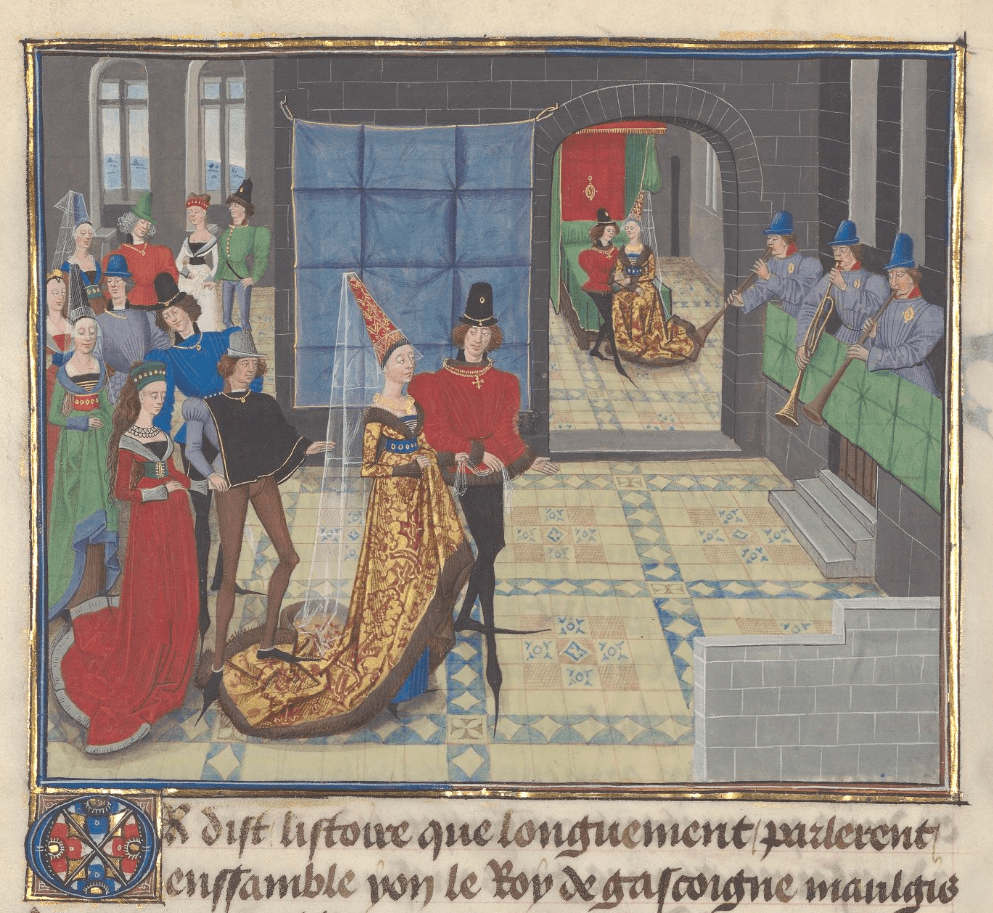 OR dist listoire que longuement parlerent
ensamble yon le Roy de gascoigne maulgis